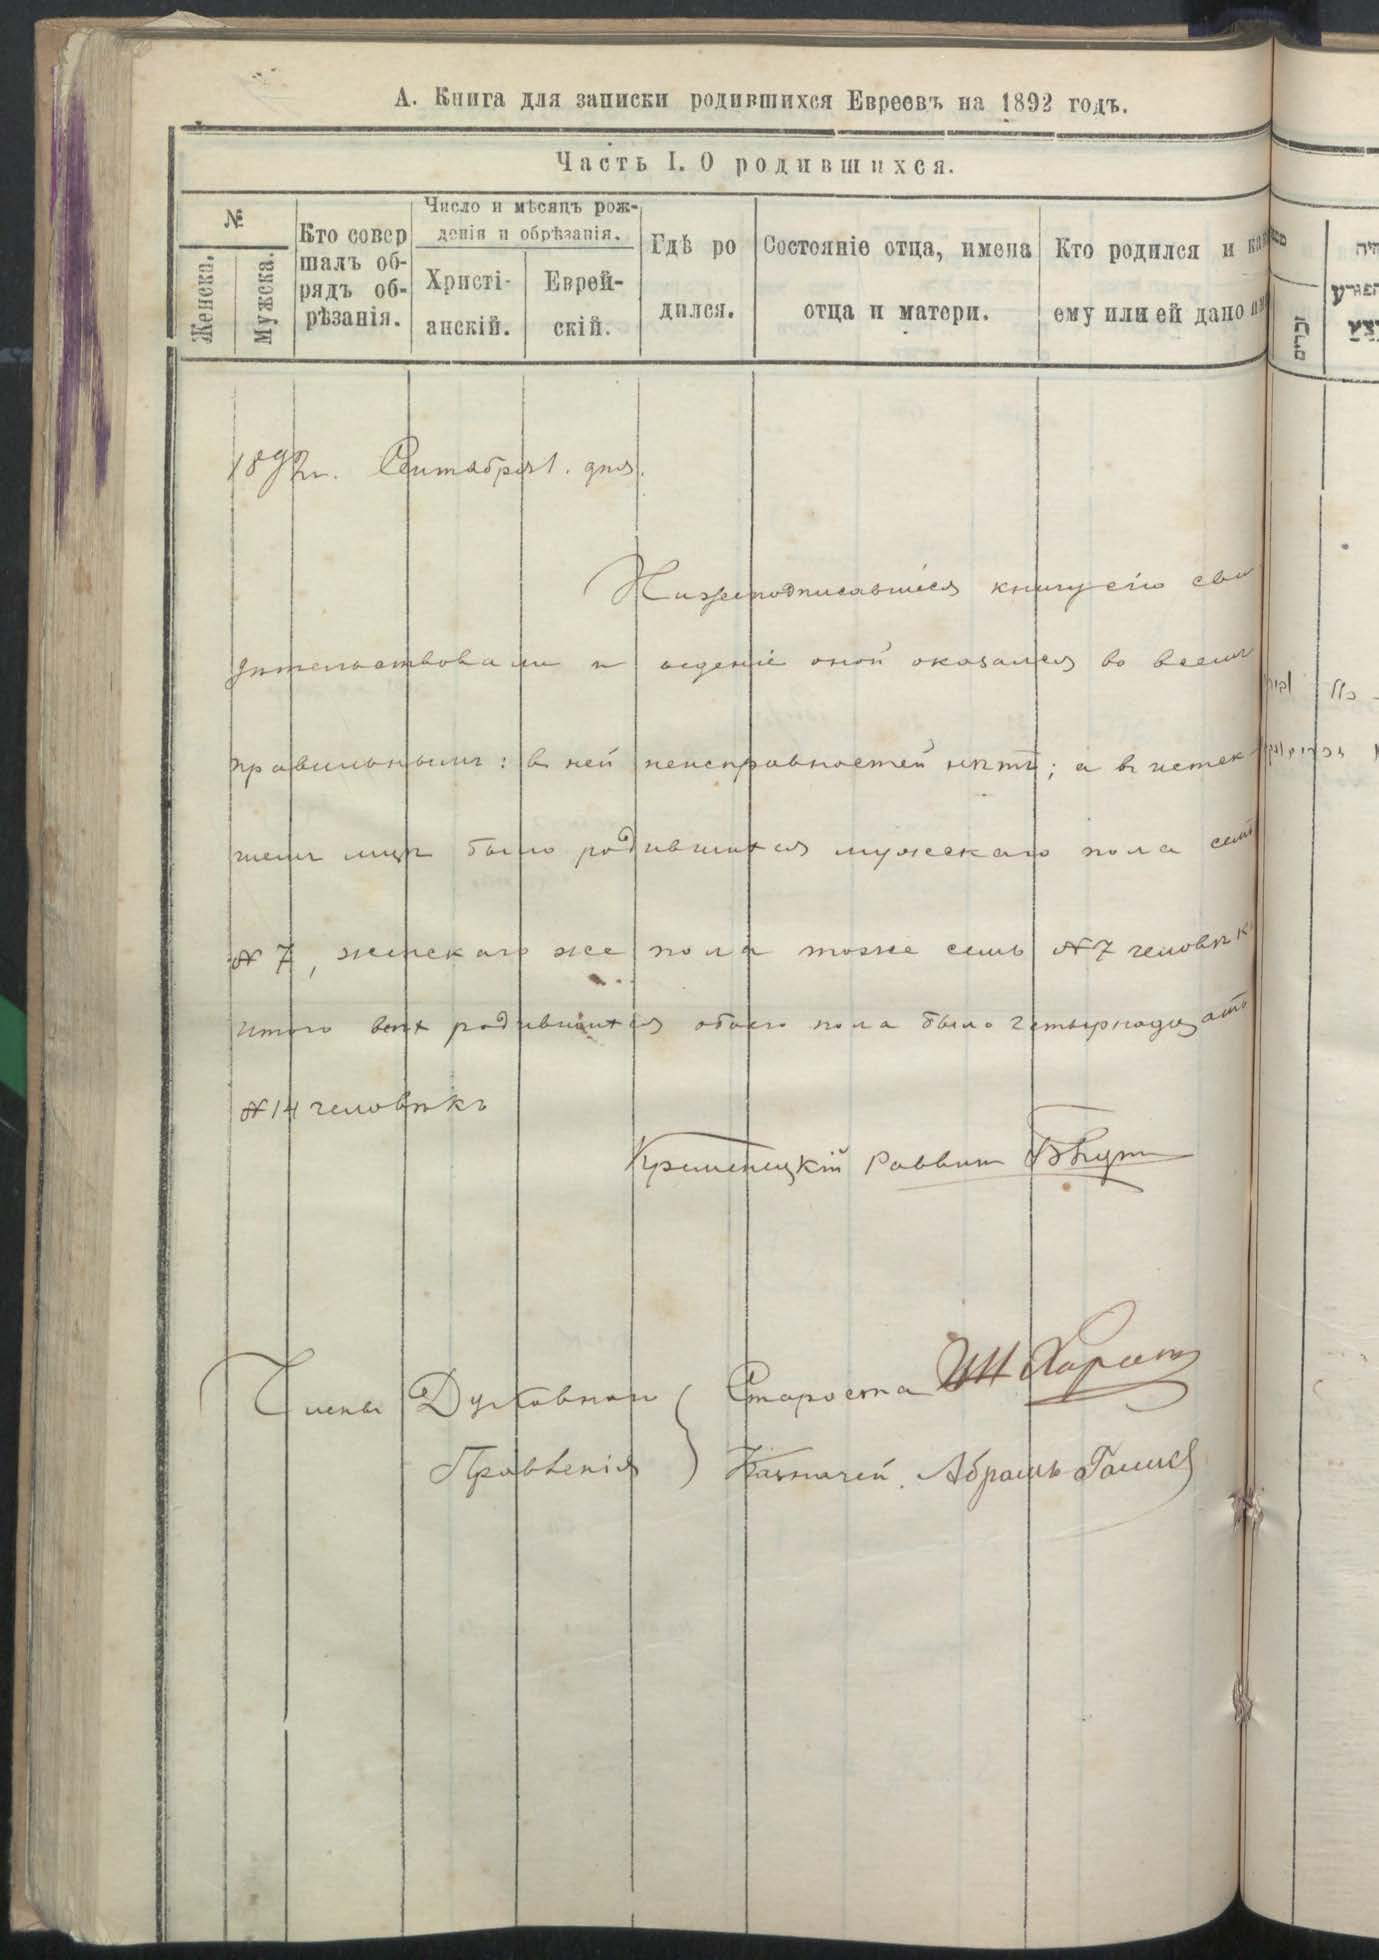 А. Книга для записки родившихся Евреевъ на 1892 годъ.
Часть I. О родившихся.
№
Женска.
Мужска.
Кто совер
шалъ об-
рядъ об-
рѣзанія.
Число и мѣсяцъ рож-
денія и обрѣзанія.
Христі-
анскій.
Еврей-
скій.
Гдѣ ро
дился.
Состояніе отца, имена
отца и матери.
Кто родился и
ему или ей дано
1892 г. Сентября 1. дня.
Нижеподписавшіеся книгу сію сви
дѣтельствовали и веденіе оной оказалось во всемъ
правильнымъ: в ней неисправностей нѣтъ; а въ истек-
шемъ м-цѣ было родившихся мужскаго пола семь
№ 7, женскаго же пола тоже семь № 7 человѣкъ
итого всѣх родившихся обоего пола было четырнадцать
№ 14 человѣкъ
Кременецкій Раввин
Члены Духовнаго
Правленія
Староста
Казначей. Абрамъ